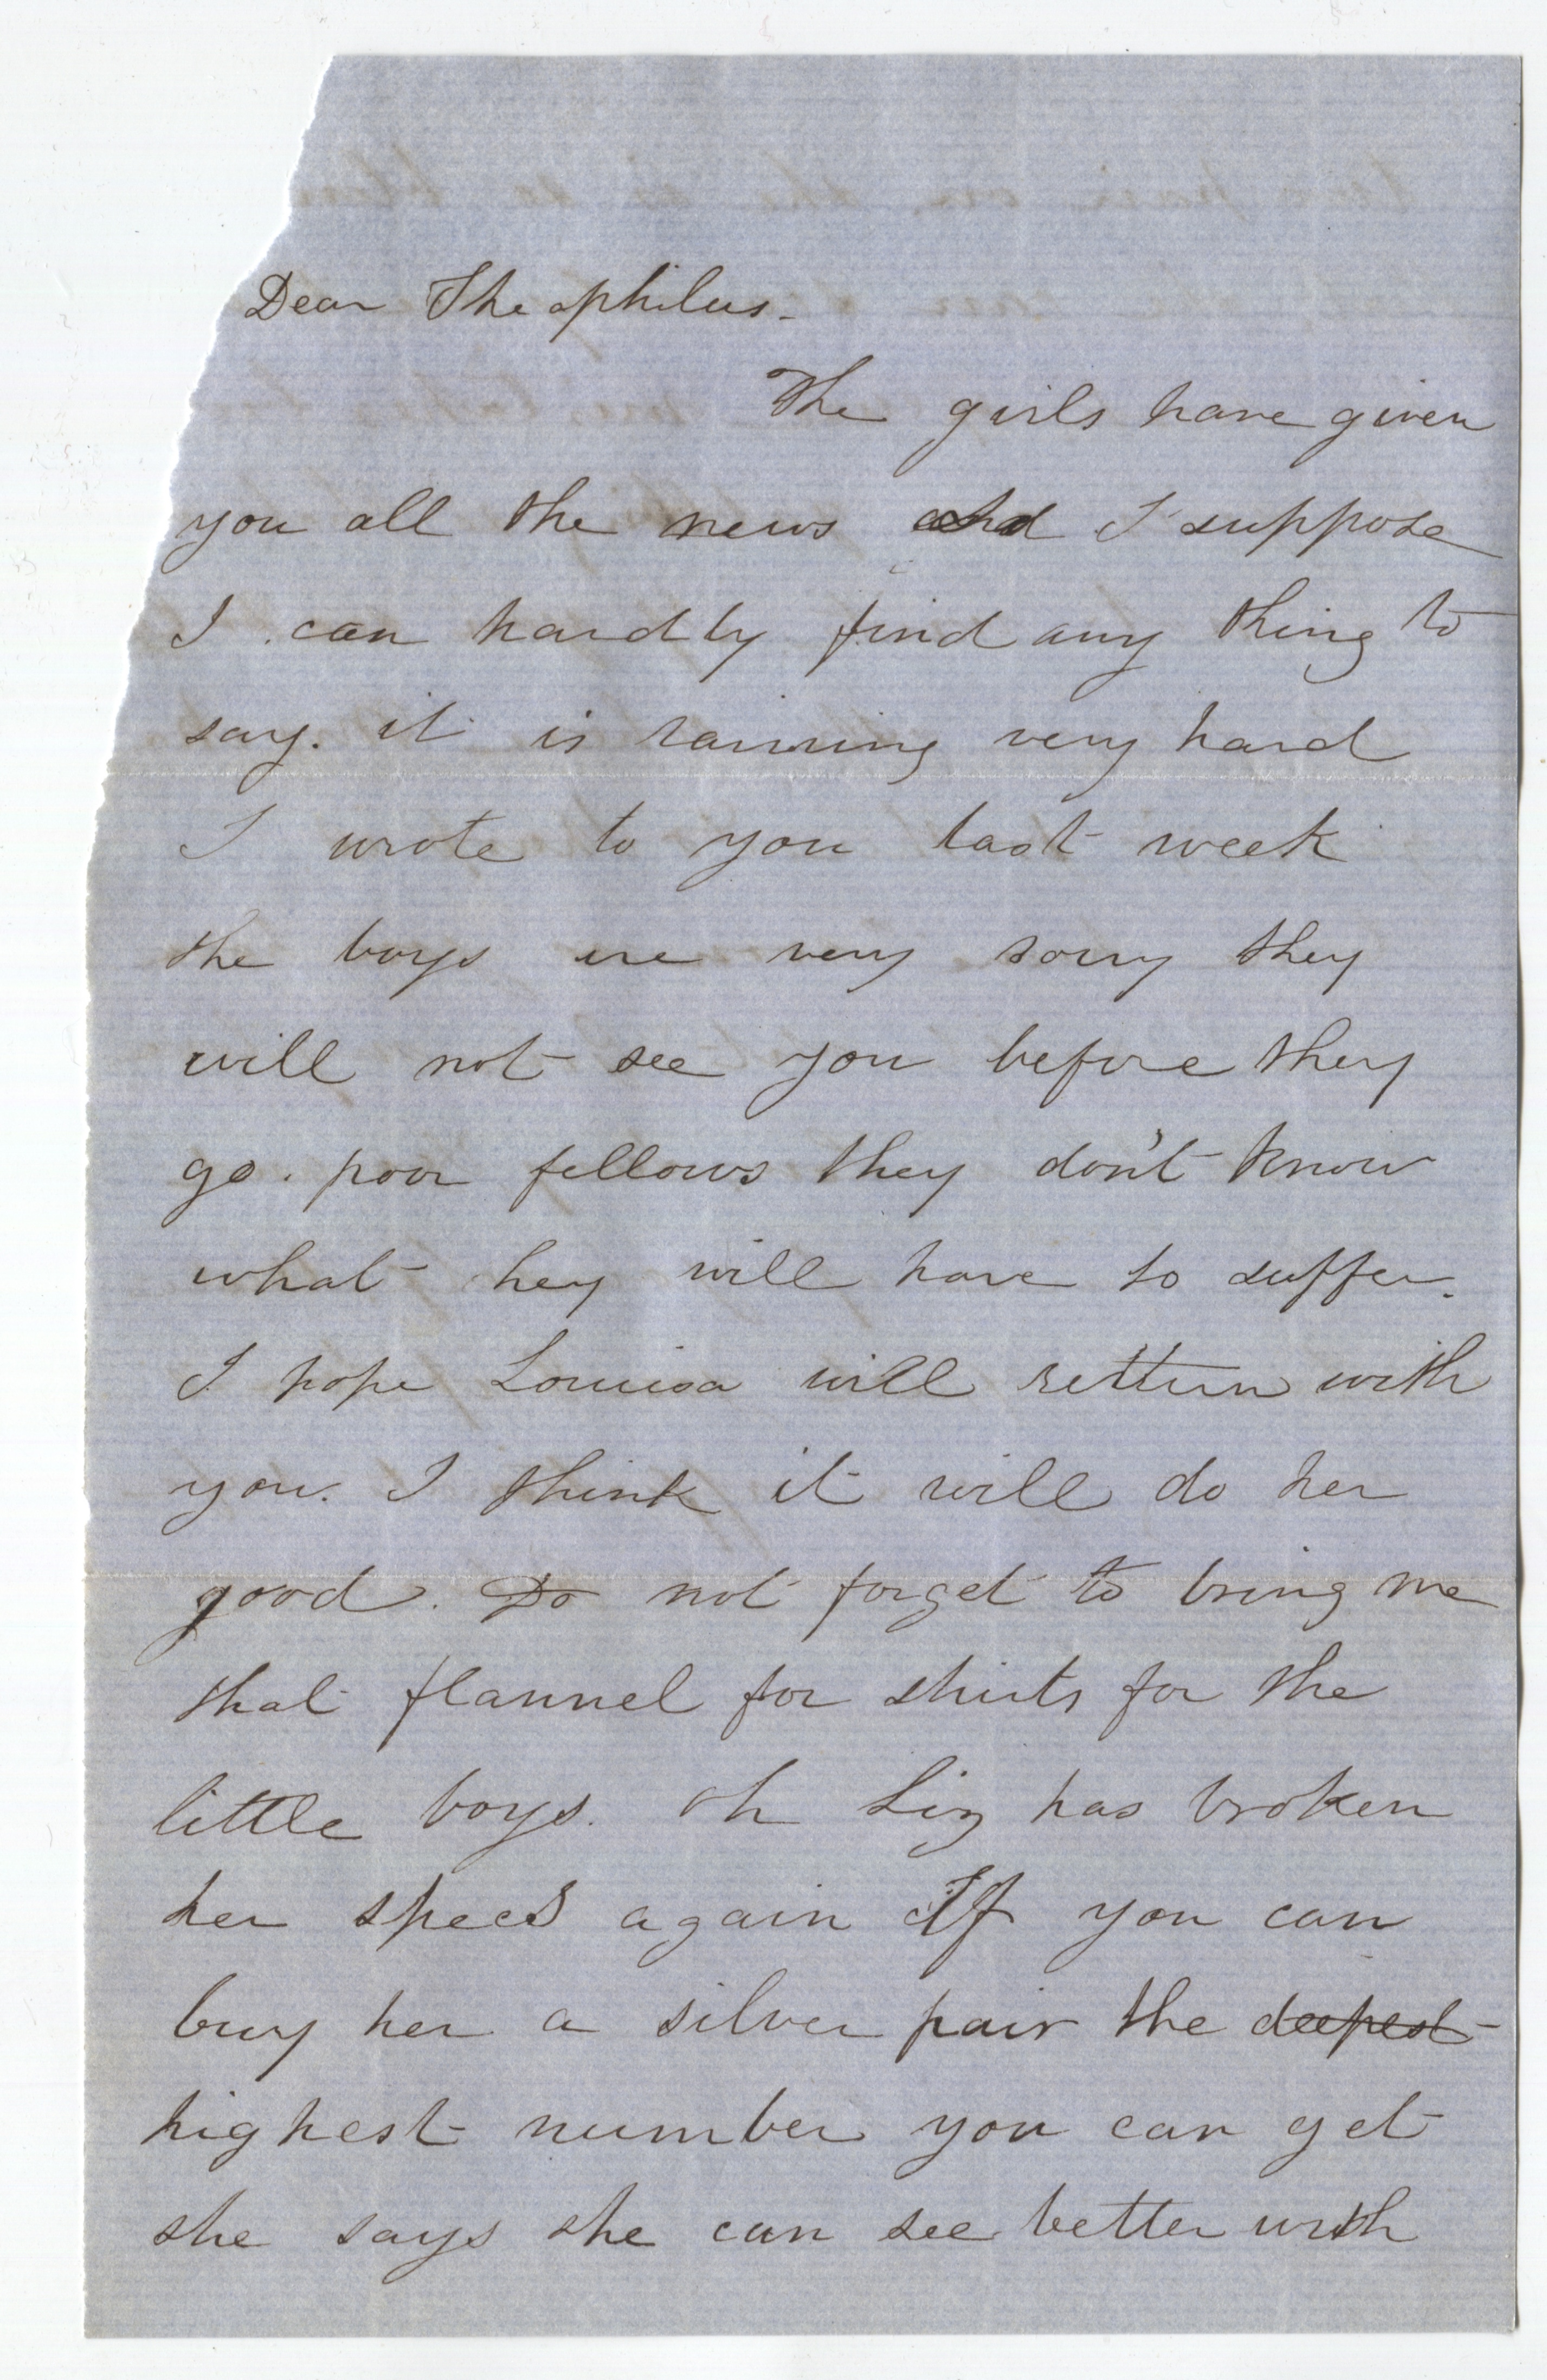 Dear Theophilus.
The girls have given
you all the news and I suppose
I can hardly find any thing to
say. it is raining very hard
I wrote to you last week
the boys are very sorry they
will not see you before they
go. poor fellows they don't know
what hey will have to suffer.
I hope Louisa will retturn with
you. I think it will do her
good. Do not forget to bring me
that flannel for shirts for the
little boys. Oh Liz has broken
her specs again If you can
buy her a silver pair the deepest
highest number you can get
she says she can see better with